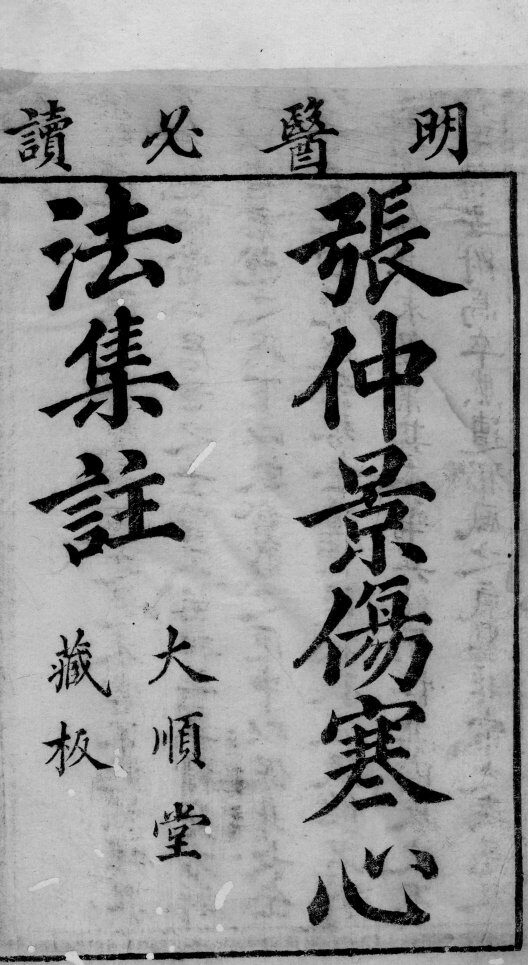 明醫必讀
張仲景傷寒心
法集註
大順堂
藏板